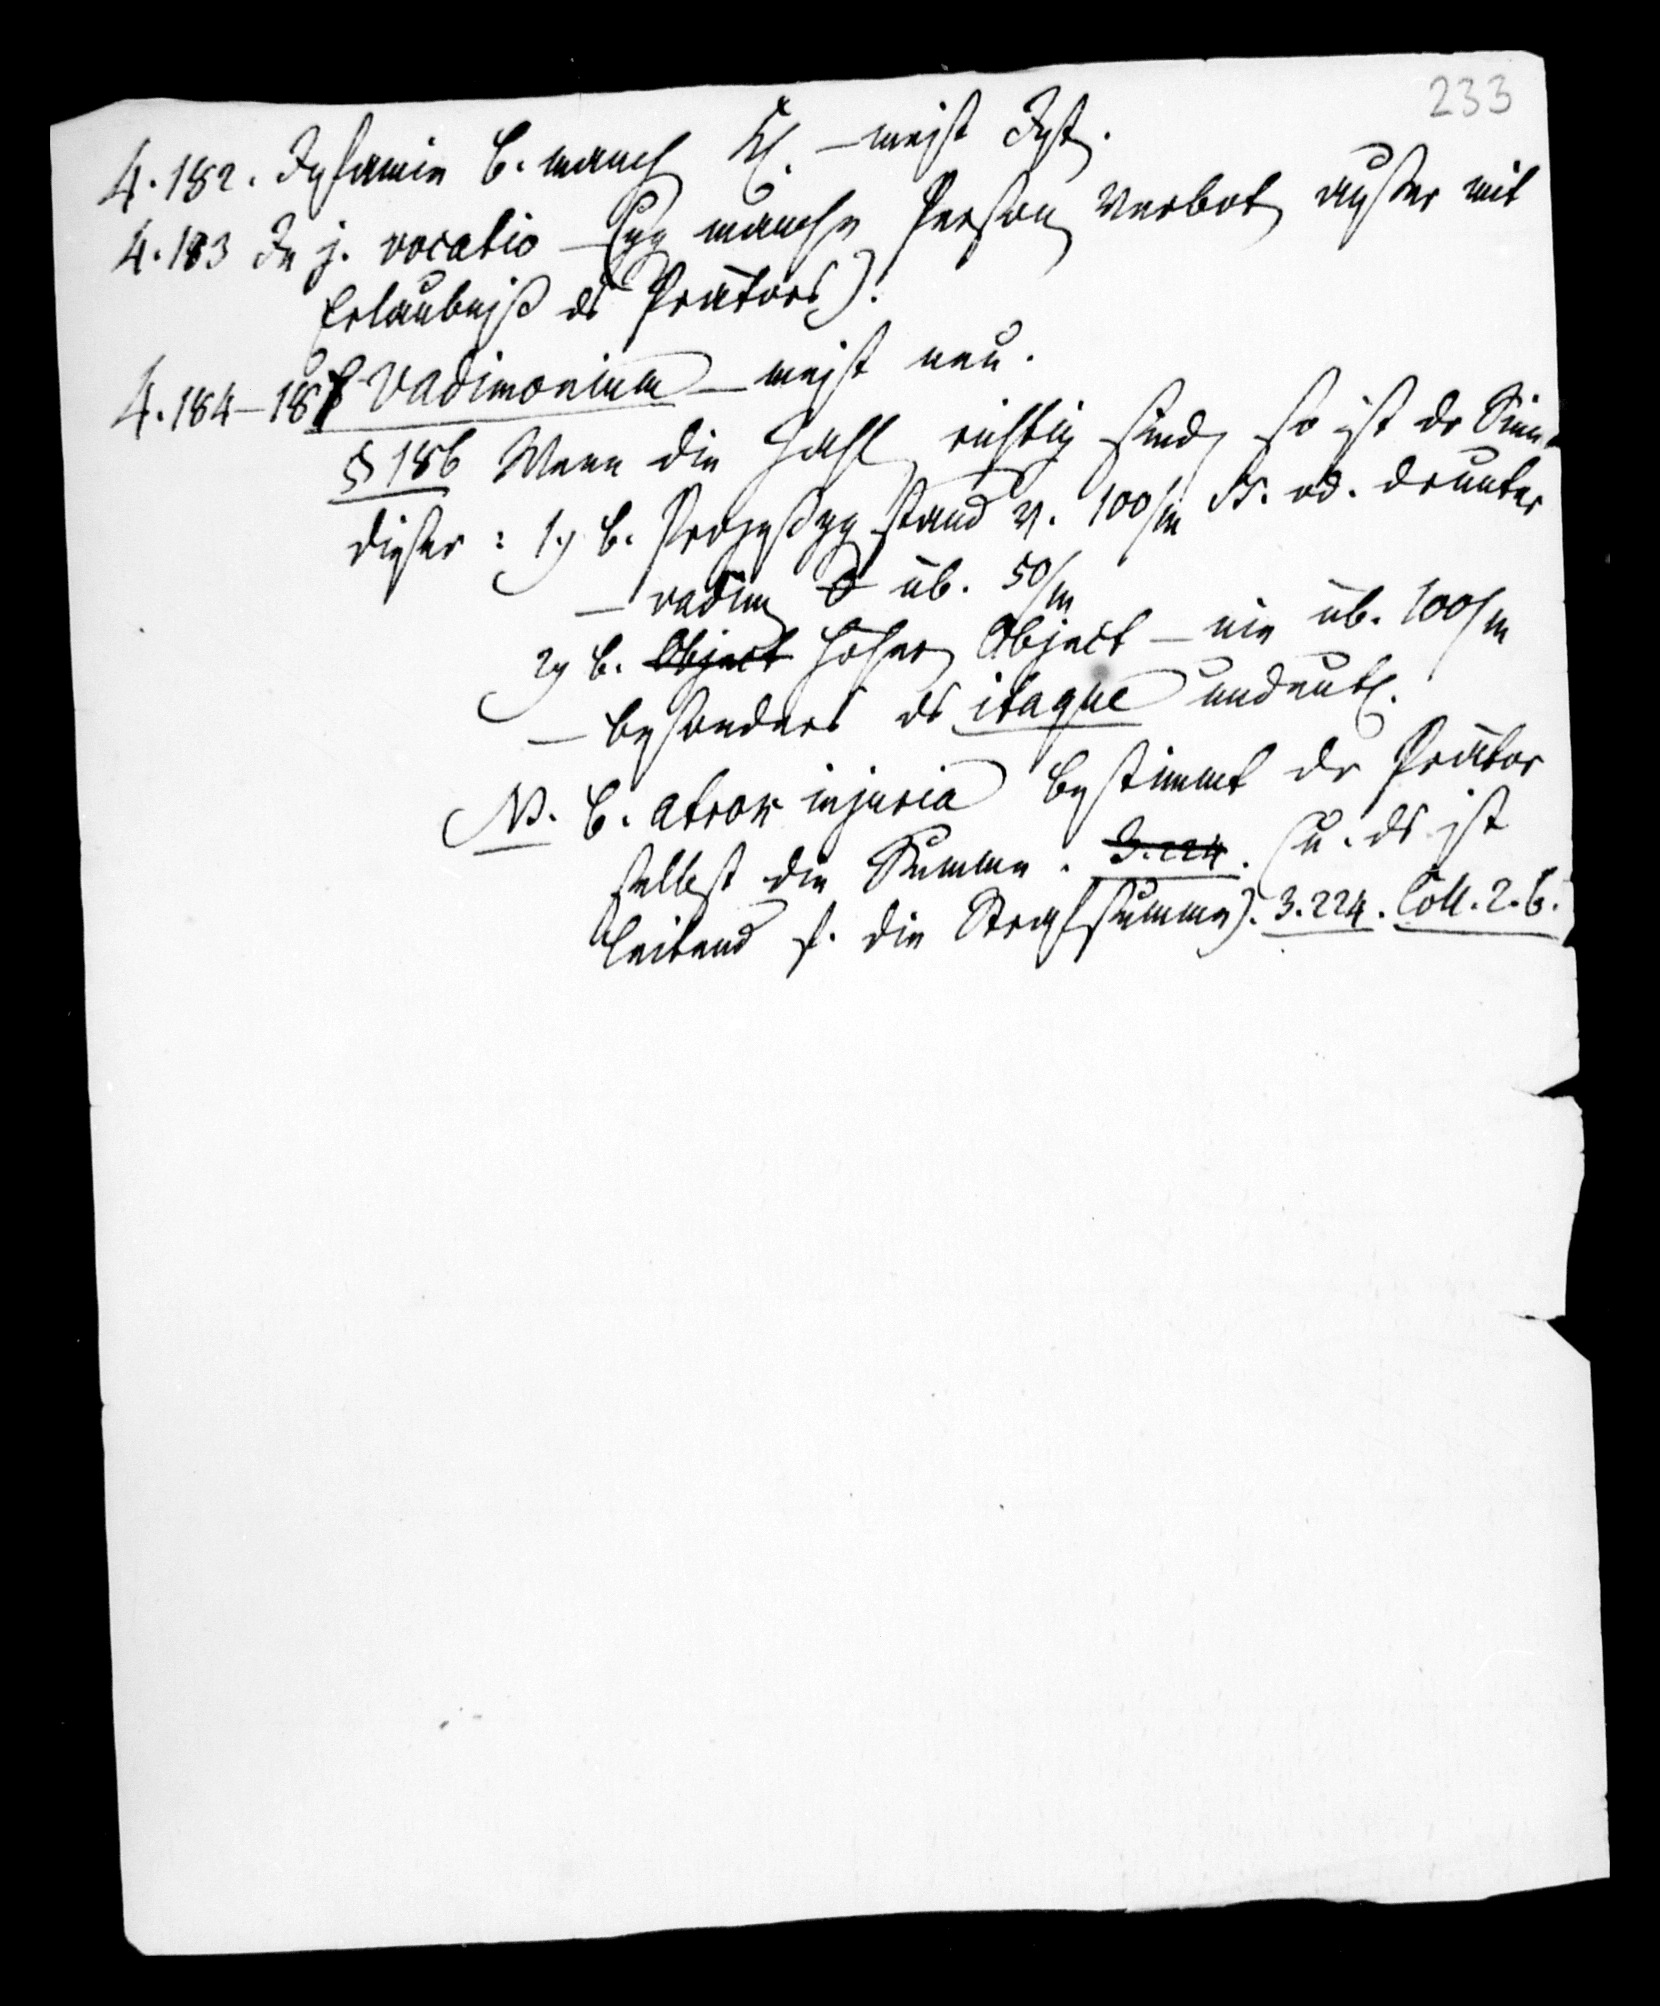 233
4.182. Infamie b. manch Kl. – meist Inst.
4.183 In j. vocatio – (gg manche Person Verbot, außer mit
Erlaubniß ds Prätors).
4.184–187 Vadimonium – meist neu.
§ 186 Wenn die Zahl richtig sind, so ist dr Sinn
dieser: 1) b. Prozeßggstand v. 100/m S. od. drunter
– vadim 0 üb. 50/m
2) b. Object höher Object – nie üb. 100/m
– besonders ds itaque undeutl.
N. b. atrox injuria bestimmt dr Prätor
selbst die Summe. 3.224. (u. ds ist
leitend f. die Strafsumme). 3.224. Coll. 2.6.